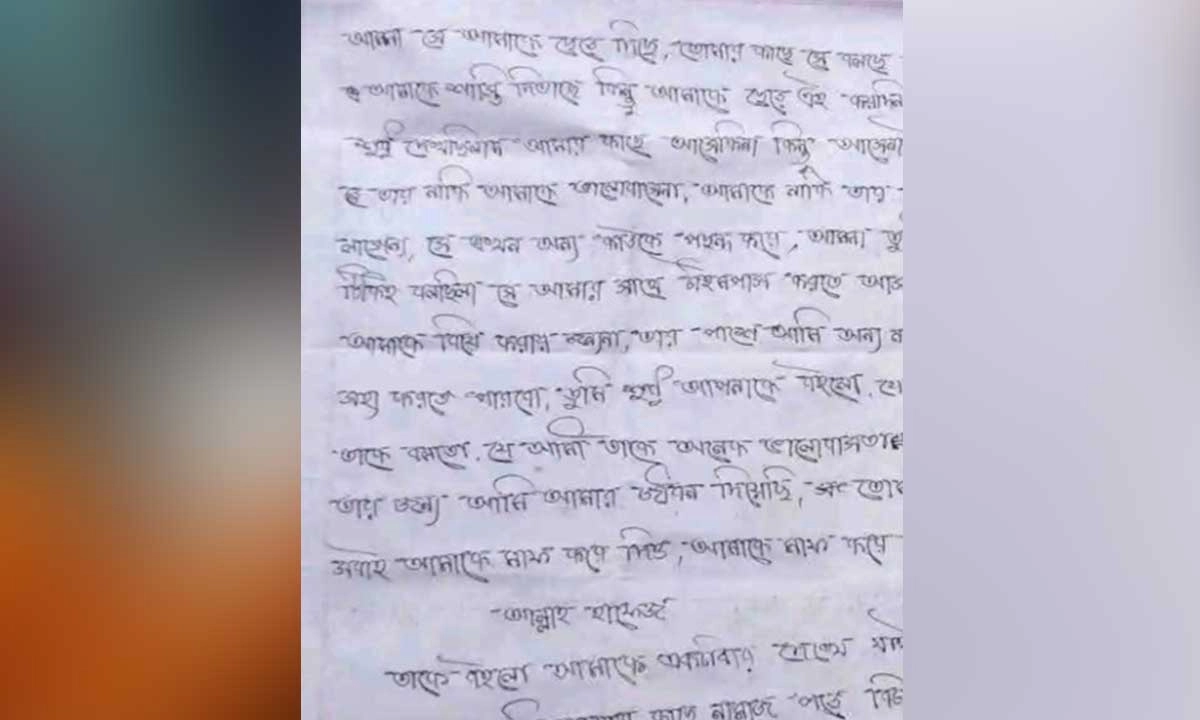 আম্মা সে আমাকে ছেরে দিছে, তোমার কাছে সে বলছে
আমাকে শাস্তি দিতাছে কিন্তু আমাকে ছেরে এই কয়দিন
আমার কাছে আসেনি কিন্তু
তার নাকি আমাকে ভালোবাসেনা, আমাকে নাকি তার
লাগেনা, সে এখন অন্য কাউকে পছন্দ করে, আম্মা
ঠিকই বলছিলা সে আমার সাথে টাইমপাস করতে
আমাকে বিয়ে করার জন্যনা, তার পাশে আমি অন্য
সহ্য করতে পারবো, তুমি শুধু আপনাকে বইলো,
তাকে বলতে, যে আমি তাকে অনেক ভালোবাসতাম
তার জন্য আমি আমার জীবন দিয়েছি,
সবাই আমাকে মাফ করে দিও, আমাকে মাফ করে
আল্লাহ হাফেজ
তাকে বইলো আমাকে একটাবার দেখে
নামাজ পড়ে